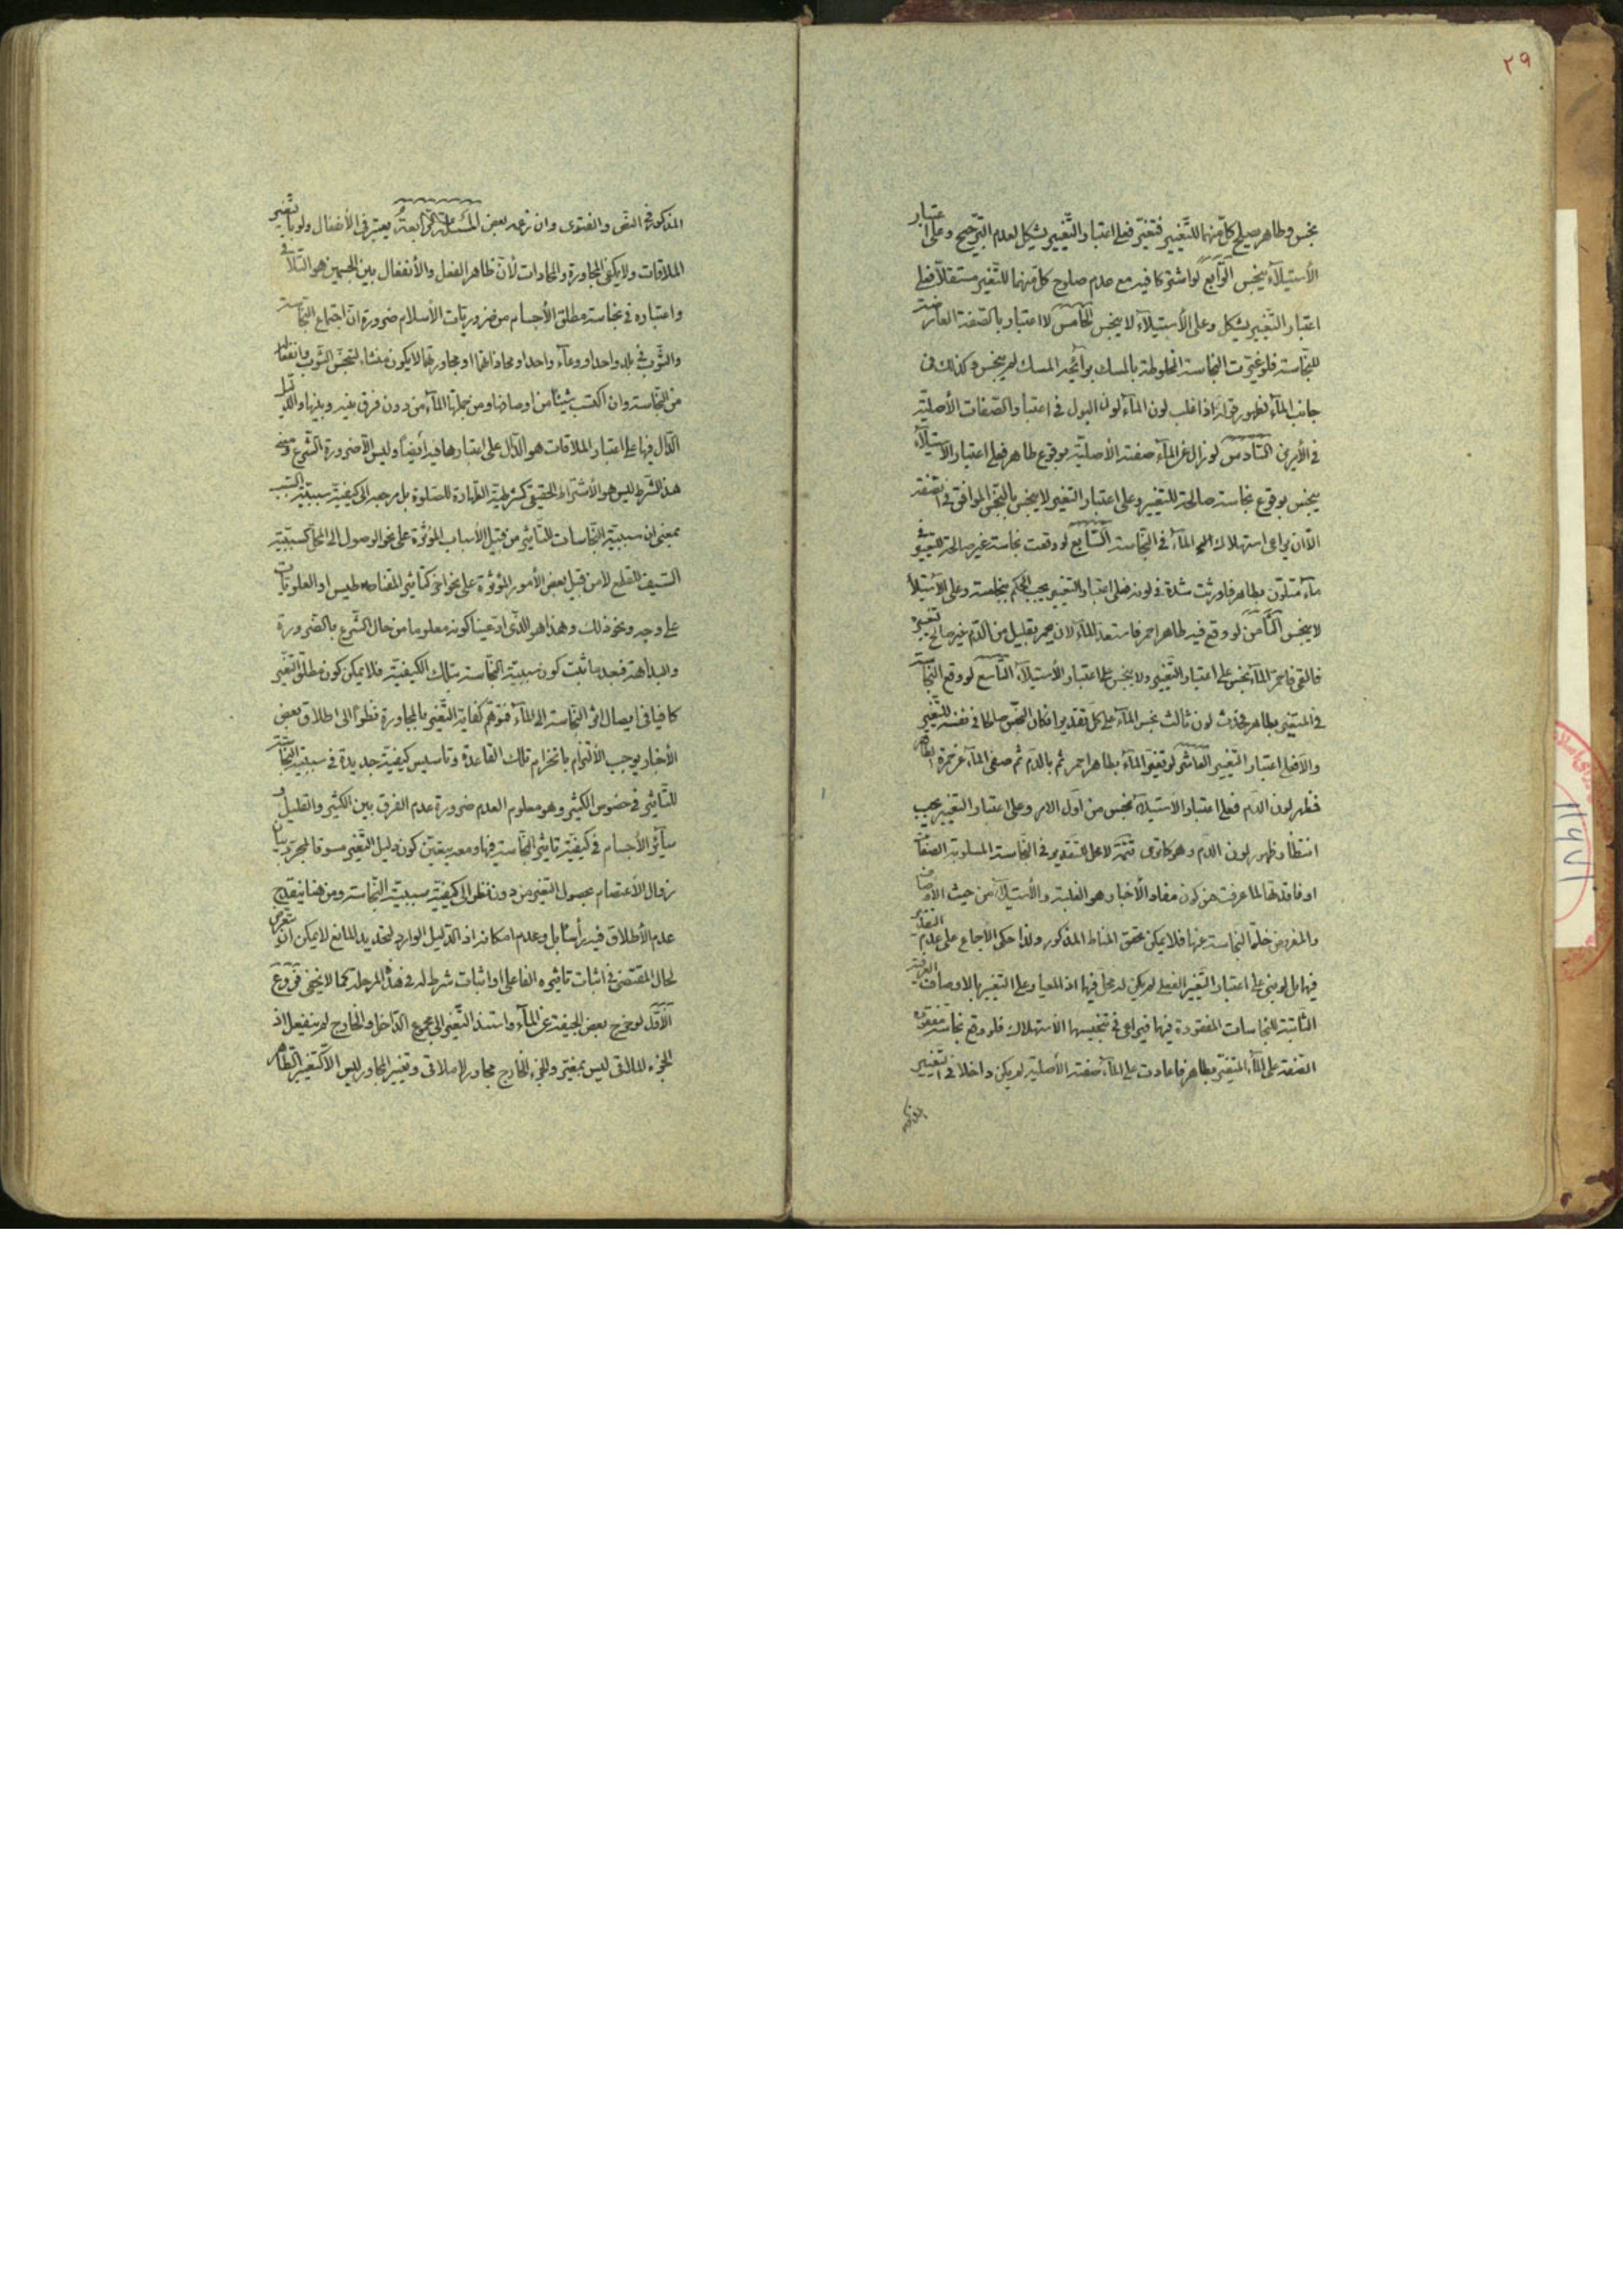 ٢٩
نجس وطاهر يصلح كل منهما للتغيير فتغير فعلى اعتبار التغيير يشكل لعدم الترجيح وعلى اعتبار
الأستيلاء ينجس الرابع لو اشتركا فيه مع عدم صلوح كل منهما للتغير مستقلا فعلى
اعتبار التغيير يشكل وعلى الأستيلاء لا ينجس الخامس لا اعتبار بالصفة العارضة
للنجاسة فلو غيرت النجاسة المخلوطة بالمسك برائحة المسك لم ينجس وكذلك في
جانب الماء لظهور قوله اذا غلب لون الماء لون البول في اعتبار الصفات الأصلية
في الأمرين السادس لو زال عن الماء صفته الأصلية بوقوع طاهر فعلى اعتبار الاستيلاء
ينجس بوقوع نجاسة صالحة للتغيير وعلى اعتبار التغيير لا ينجس بالنجس الموافق في الصفة
الا ان يراعى استهلاك الماء في النجاسة السابع لو وقعت نجاسة غير صالحة للتغيير في
ماء متلون بطاهر فاورثت شدة في لونه فعلى اعتبار التغيير يجب الحكم بنجاسته وعلى الأستيلاء
لا ينجس الثامن لو وقع فيه طاهر احمر فاستعد الماء لان يحمر بقليل من الدم غير صالح لتغييره
فالقى فاحمر الماء نجس على اعتبار التغيير ولا ينجس على اعتبار الأستيلاء التاسع لو وقع النجاسة
في المتغير بطاهر فحدث لون ثالث نجس الماء على كل تقدير ان كان النجس صالحا في نفسه للتغيير
والا فعلى اعتبار التغيير العاشر لو تغير الماء بطاهر احمر ثم بالدم ثم صفى الماء عن حمرة الطاهر
فظهر لون الدم فعلى اعتبار الاستيلاء نجس من اول الامر وعلى اعتبار التغيير يجب
انتظار ظهور لون الدم وهو كما ترى لا عمل للتقدير في النجاسة المسلوبة الصفات
او فاقدتها لما عرفت من كون مفاد الأخبار هو الغلبة والأستيلاء من حيث الاوصاف
والمفروض خلو النجاسة عنها فلا يمكن تحقق المناط المذكور ولذا حكى الاجماع على عدم التقدير
فيها بل لو بنى على اعتبار التغير الفعلي لم يكن له محل فيها اذ المعيار على التغيير بالاوصاف
الثابتة للنجاسات المفقودة فيها فيراعى في تنجيسها الأستهلاك فلو وقع نجاسة مفقودة
الصفة على الماء المتغير بطاهر فاعادت على الماء صفته الأصلية لم يكن داخلا في التغيير
المذكور
المذكور في النص والفتوى وان زعمه بعض المسئلة الرابعة يعتبر في الأنفعال ولو بالتغيير
الملاقات ولا يكفى المجاورة والمحاذات لأن ظاهر الفعل والأنفعال بين الجسمين هو التلاقي
واعتباره في نجاسة مطلق الأجسام من ضروريات الأسلام ضرورة ان اجتماع النجاسة
والثوب في بلد واحد او وعاء واحد او محاذاتهما او مجاورتهما لا يكون منشاء لتنجس الثوب وانفعاله
من النجاسة وان اكتسب شيئا من اوصافها ومن جملتها الماء من دون فرق بينه وبينها والدليل
الدال فيها على اعتبار الملاقات هو الدال على اعتبارها فيه ايضا وليس الا ضرورة الشرع ومعنى
هذا الشرط ليس هو الأشتراط الحقيقي كشرطية الطهارة للصلوة بل مرجعه الى كيفية سببية السبب
بمعنى ان سببية النجاسات للتاثير من قبيل الأسباب المؤثرة على نحو الوصول الى المحل كسببية
السيف للقطع لا من قبيل بعض الأمور المؤثرة على نحو اخر كتاثير المقناطيس او العلويات
على وجه ونحو ذلك وهذا هو الذي ادعينا كونه معلوما من حال الشرع بالضرورة
والبداهة فبعد ما ثبت كون سببية النجاسة بتلك الكيفية فلا يمكن كون مطلق التغير
كافيا في ايصال اثر النجاسة الى الماء فتوهم كفاية التغير بالمجاورة نظرا الى اطلاق بعض
الأخبار يوجب الألتزام بانخرام تلك القاعدة وتاسيس كيفية جديدة في سببية النجاسة
للتاثير في خصوص الكثير وهو معلوم العدم ضرورة عدم الفرق بين الكثير والقليل و
سائر الأجسام في كيفية تاثير النجاسة فيها ومعه يتعين كون دليل التغير مسوقا لمجرد بيان
زوال الأعتصام بحصول التغير من دون نظر الى كيفية سببية النجاسة ومن هنا ينقدح
عدم الأطلاق فيه رأسا بل وعدم امكانه اذ الدليل الوارد لتحديد المانع لا يمكن ان يتعرض
لحال المقتضى في اثبات تاثيره الفاعلي او اثبات شرط له في هذه المرحلة كما لا يخفى فروع
الأول لو خرج بعض الجيفة عن الماء واستند التغير الى مجموع الداخل والخارج لم ينفعل اذ
الجزء الملاقى ليس بمغير والجزء الخارج مجاور لا ملاقى وتغيير المجاور ليس الا كتغيير الطاهر